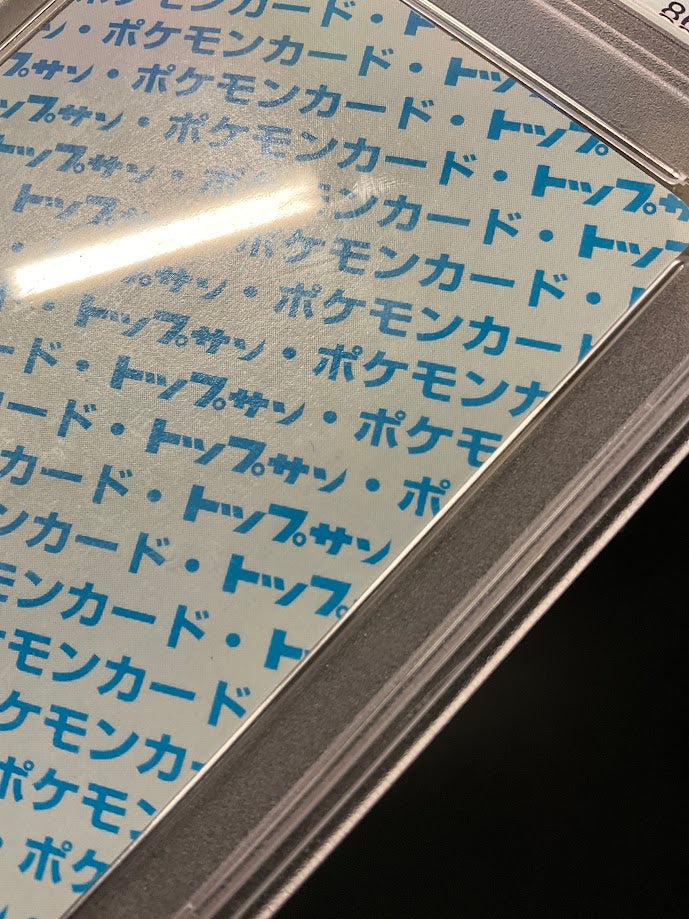 モンカード・ト
・ポケモンカード・トップ
プサン・ポケモンカード・トップ
ップサン・ポケモンカード・トップサ
トップサン・ポ ンカード・トッ
トップサン ポケモンカード・
サン・ポケモンカード
・トップサン・ポケモンカ
ード・トップサン・ポケモ
ード・トップサン・ポ
カード・トップサン
ンカード・トップ
モンカード・ト
モンカード
ケモンカー
ポケモン
・ポケ